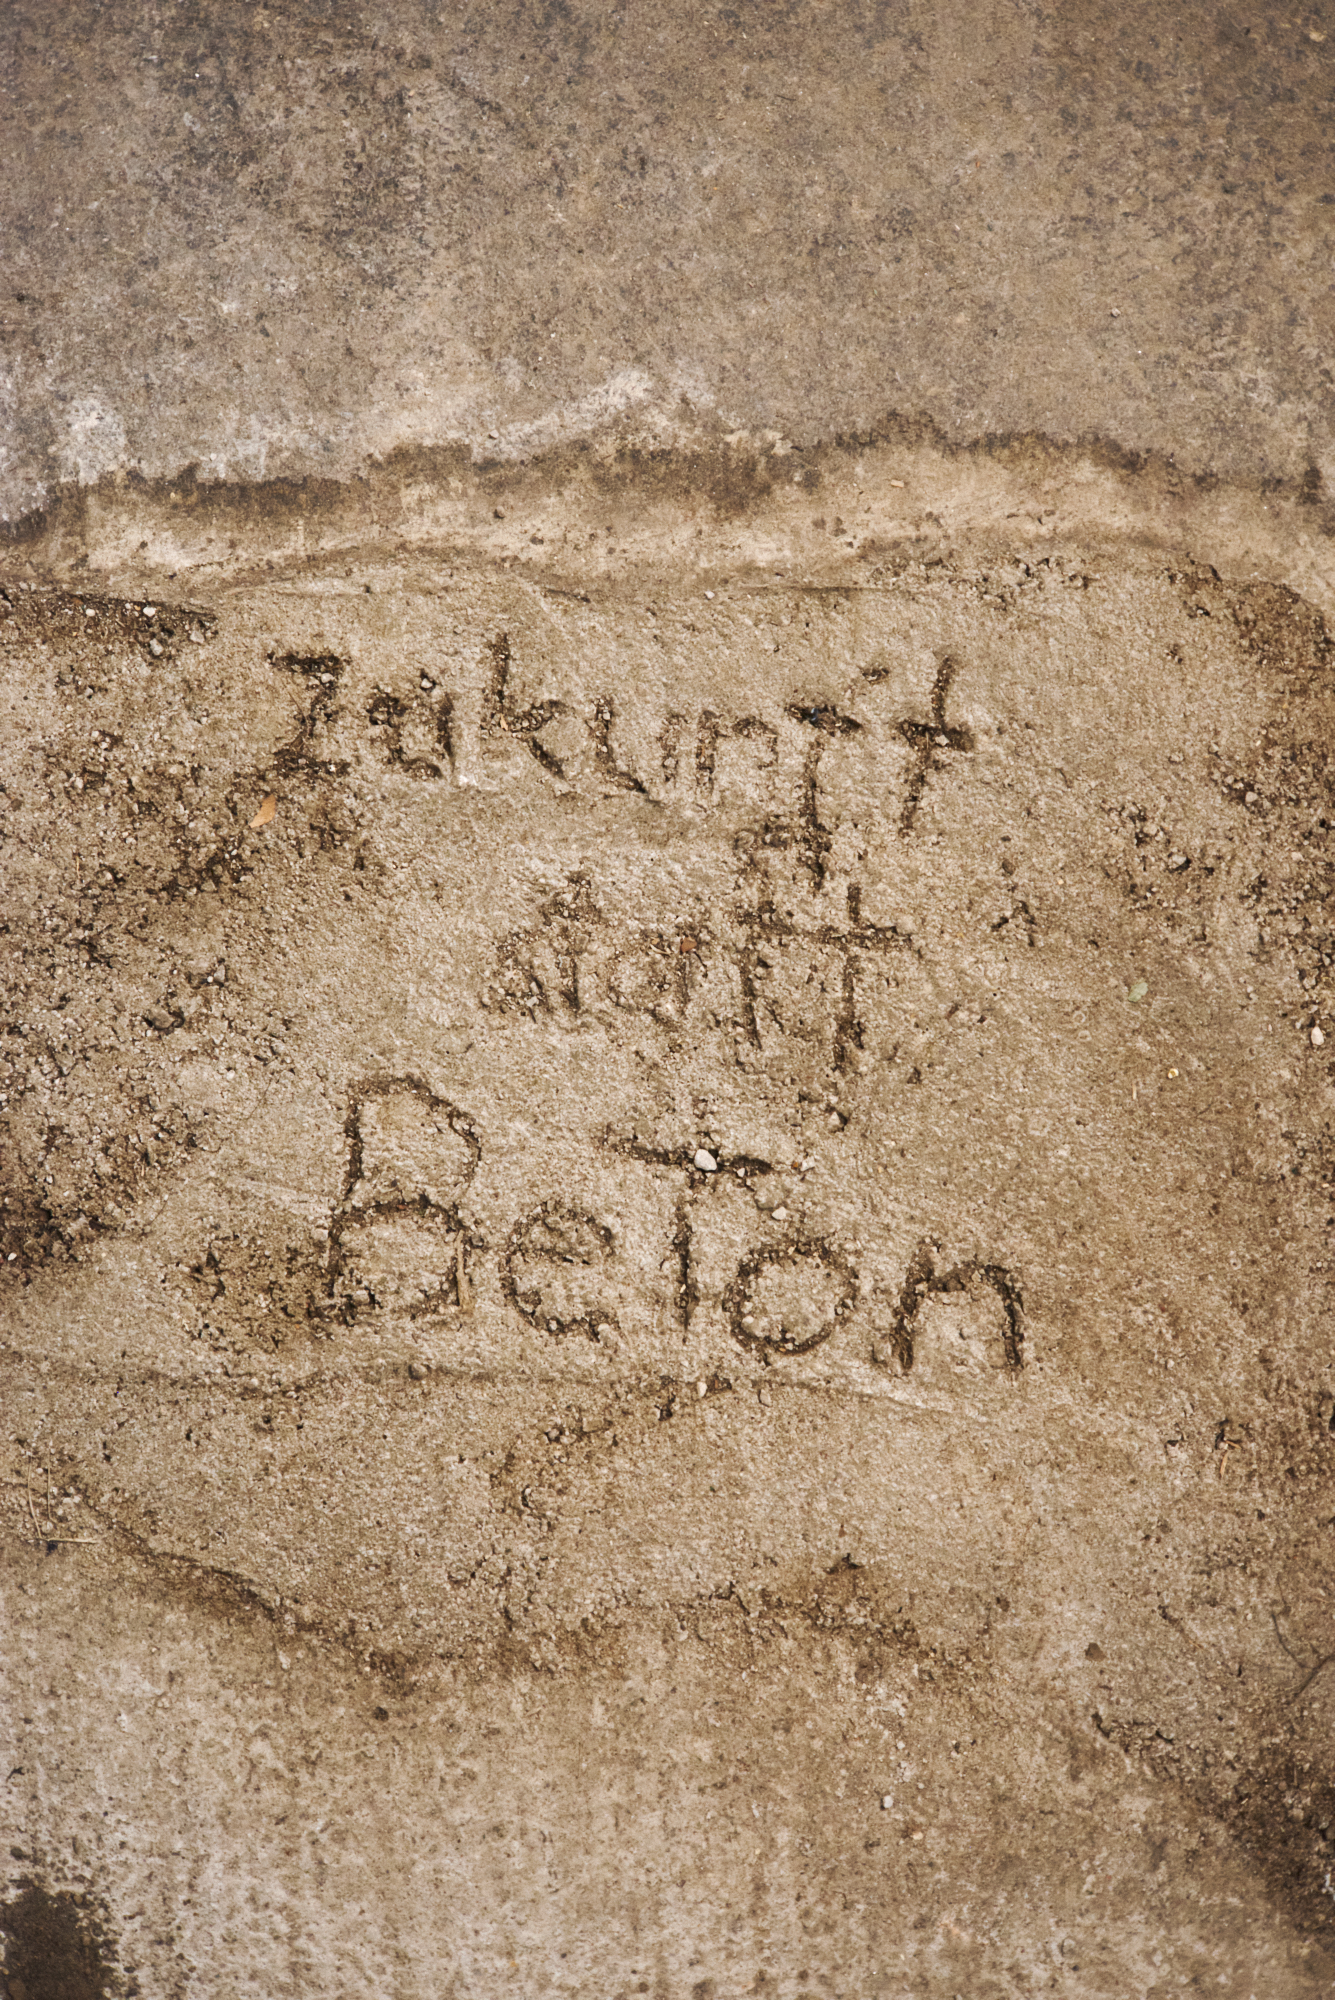 Zukunft
statt
Beton